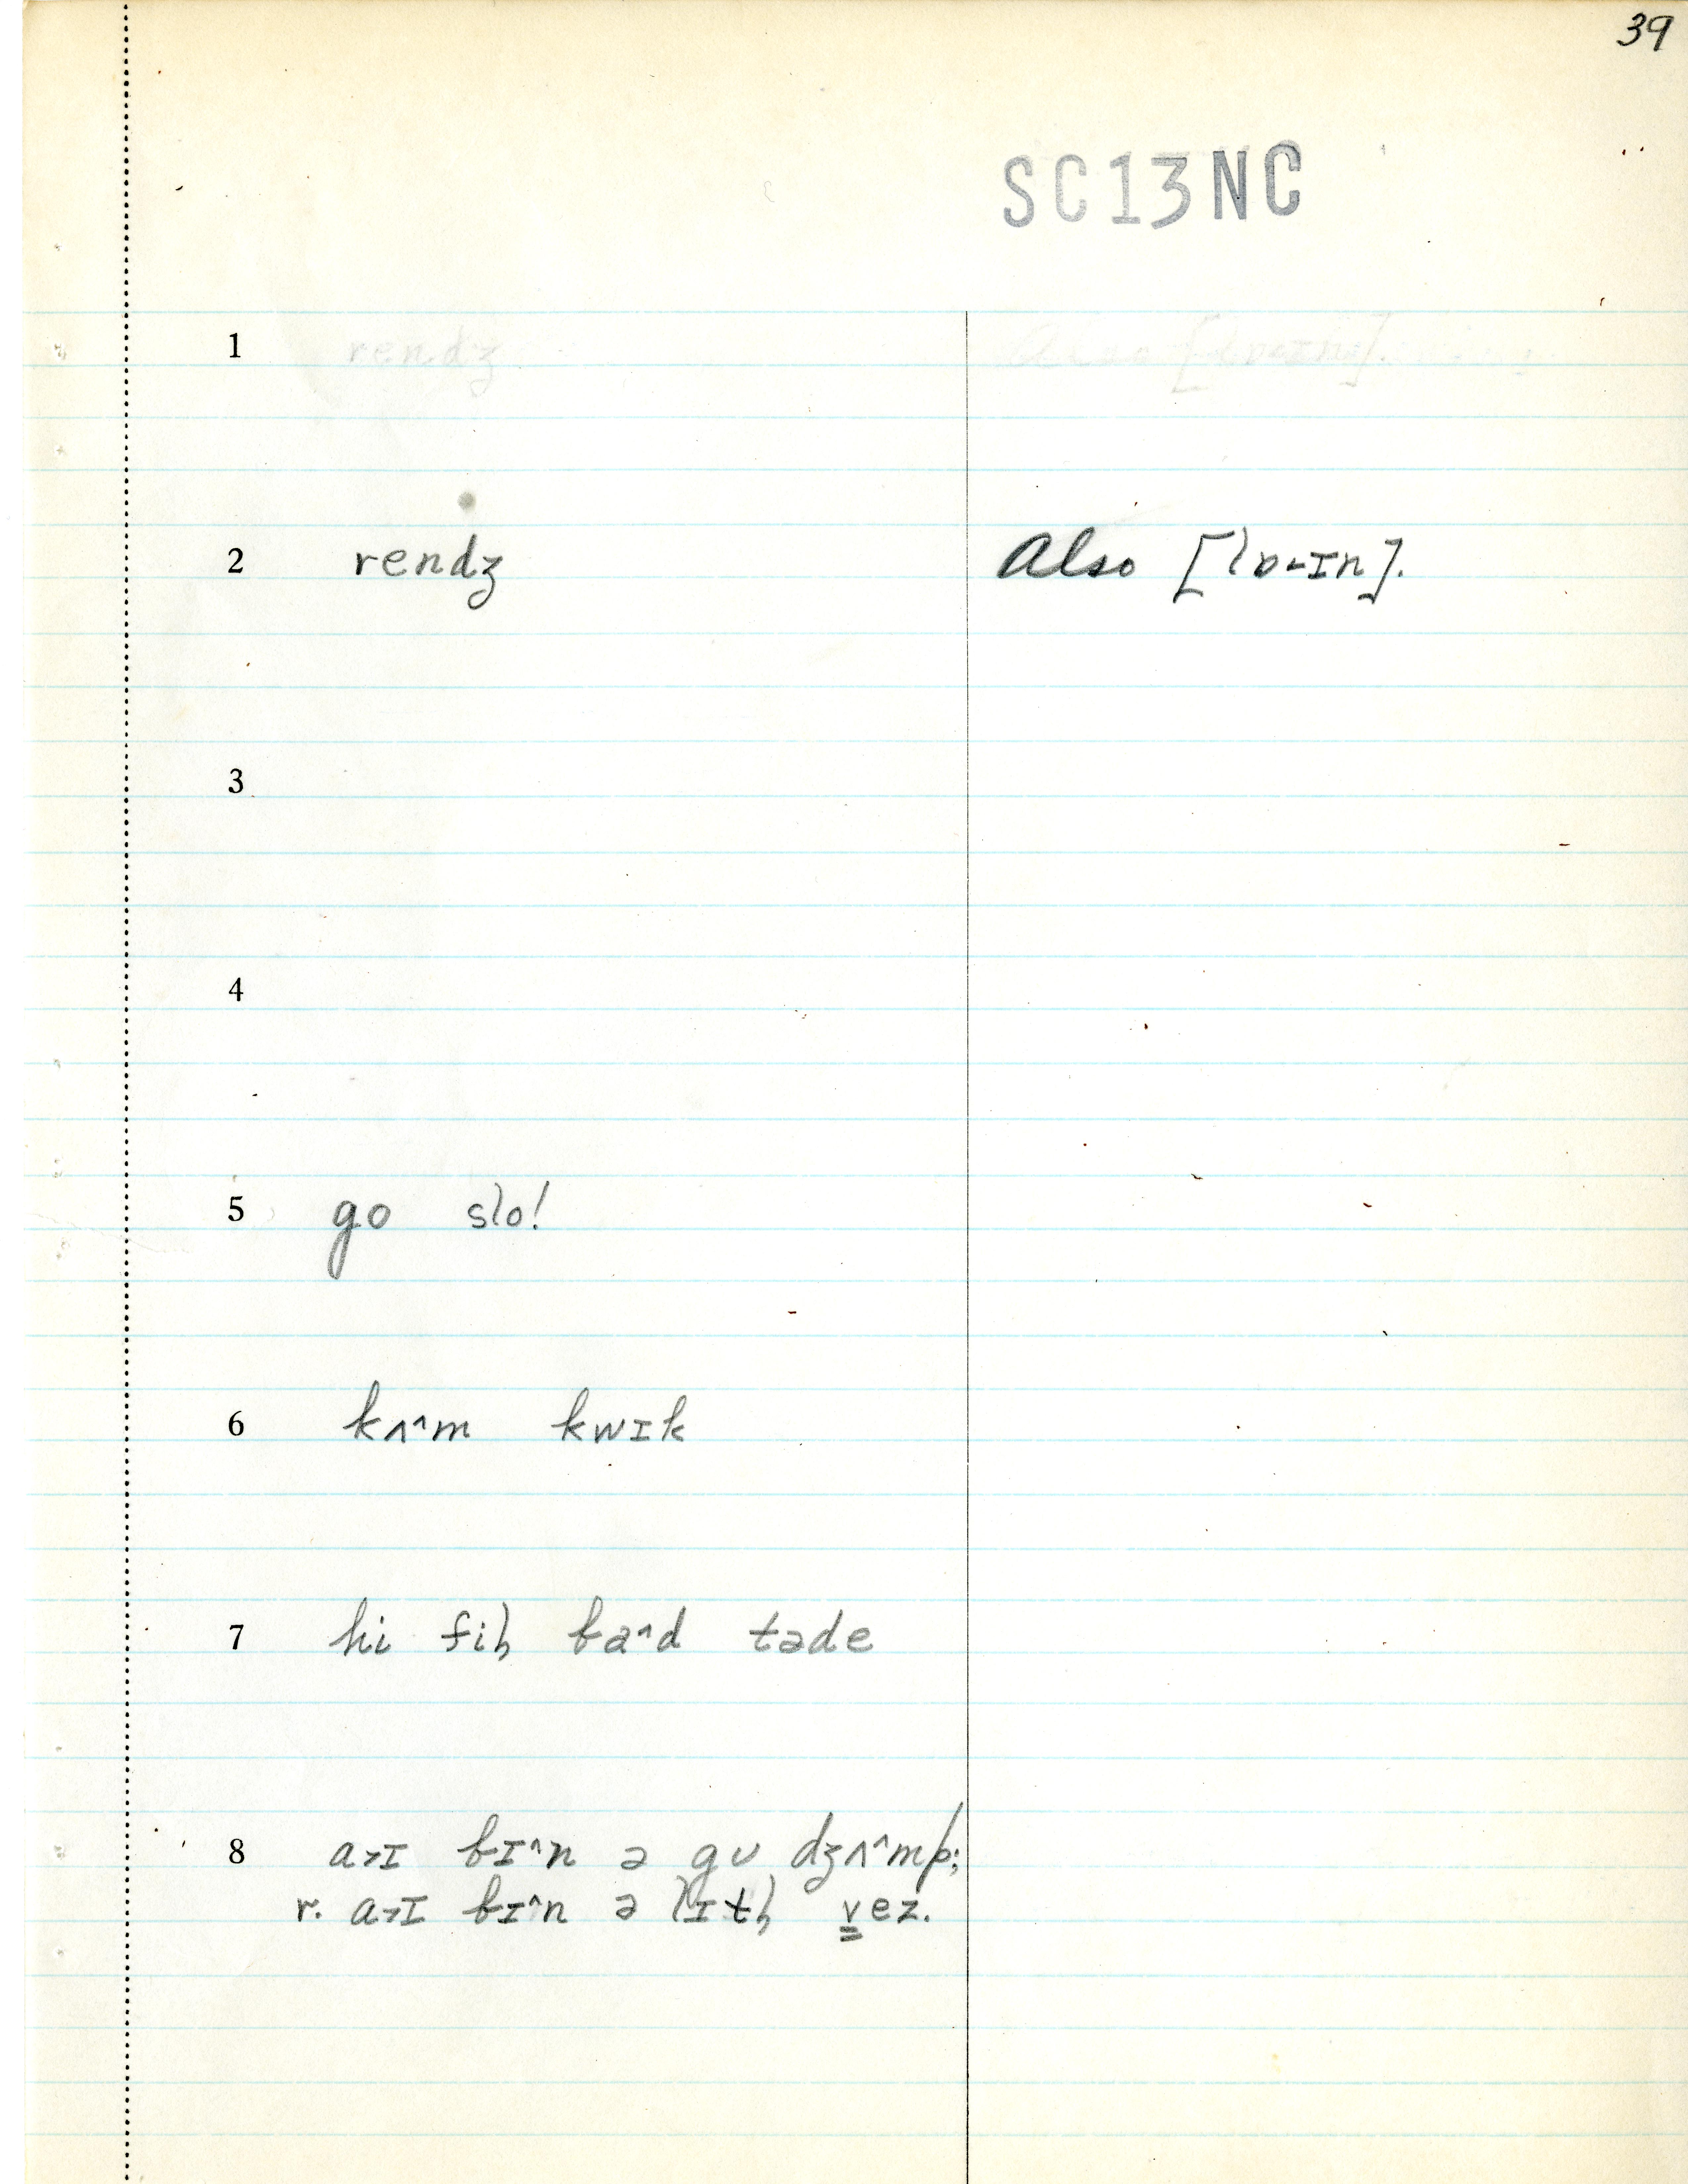 39
SC13NC
1 rendz Also [lɒ˂ɪn].
2 rendʒ Also [lɒ˂ɪn].
3
4
5 go slo!
6 kʌ^m kwɪk
7 hi fil̩ ba^d təde
8 a˃ɪ bɪ^n ə gʊ dʒʌ^mp;
r. a˃ɪ bɪ^n ə lɪtl̩ v̳ez.